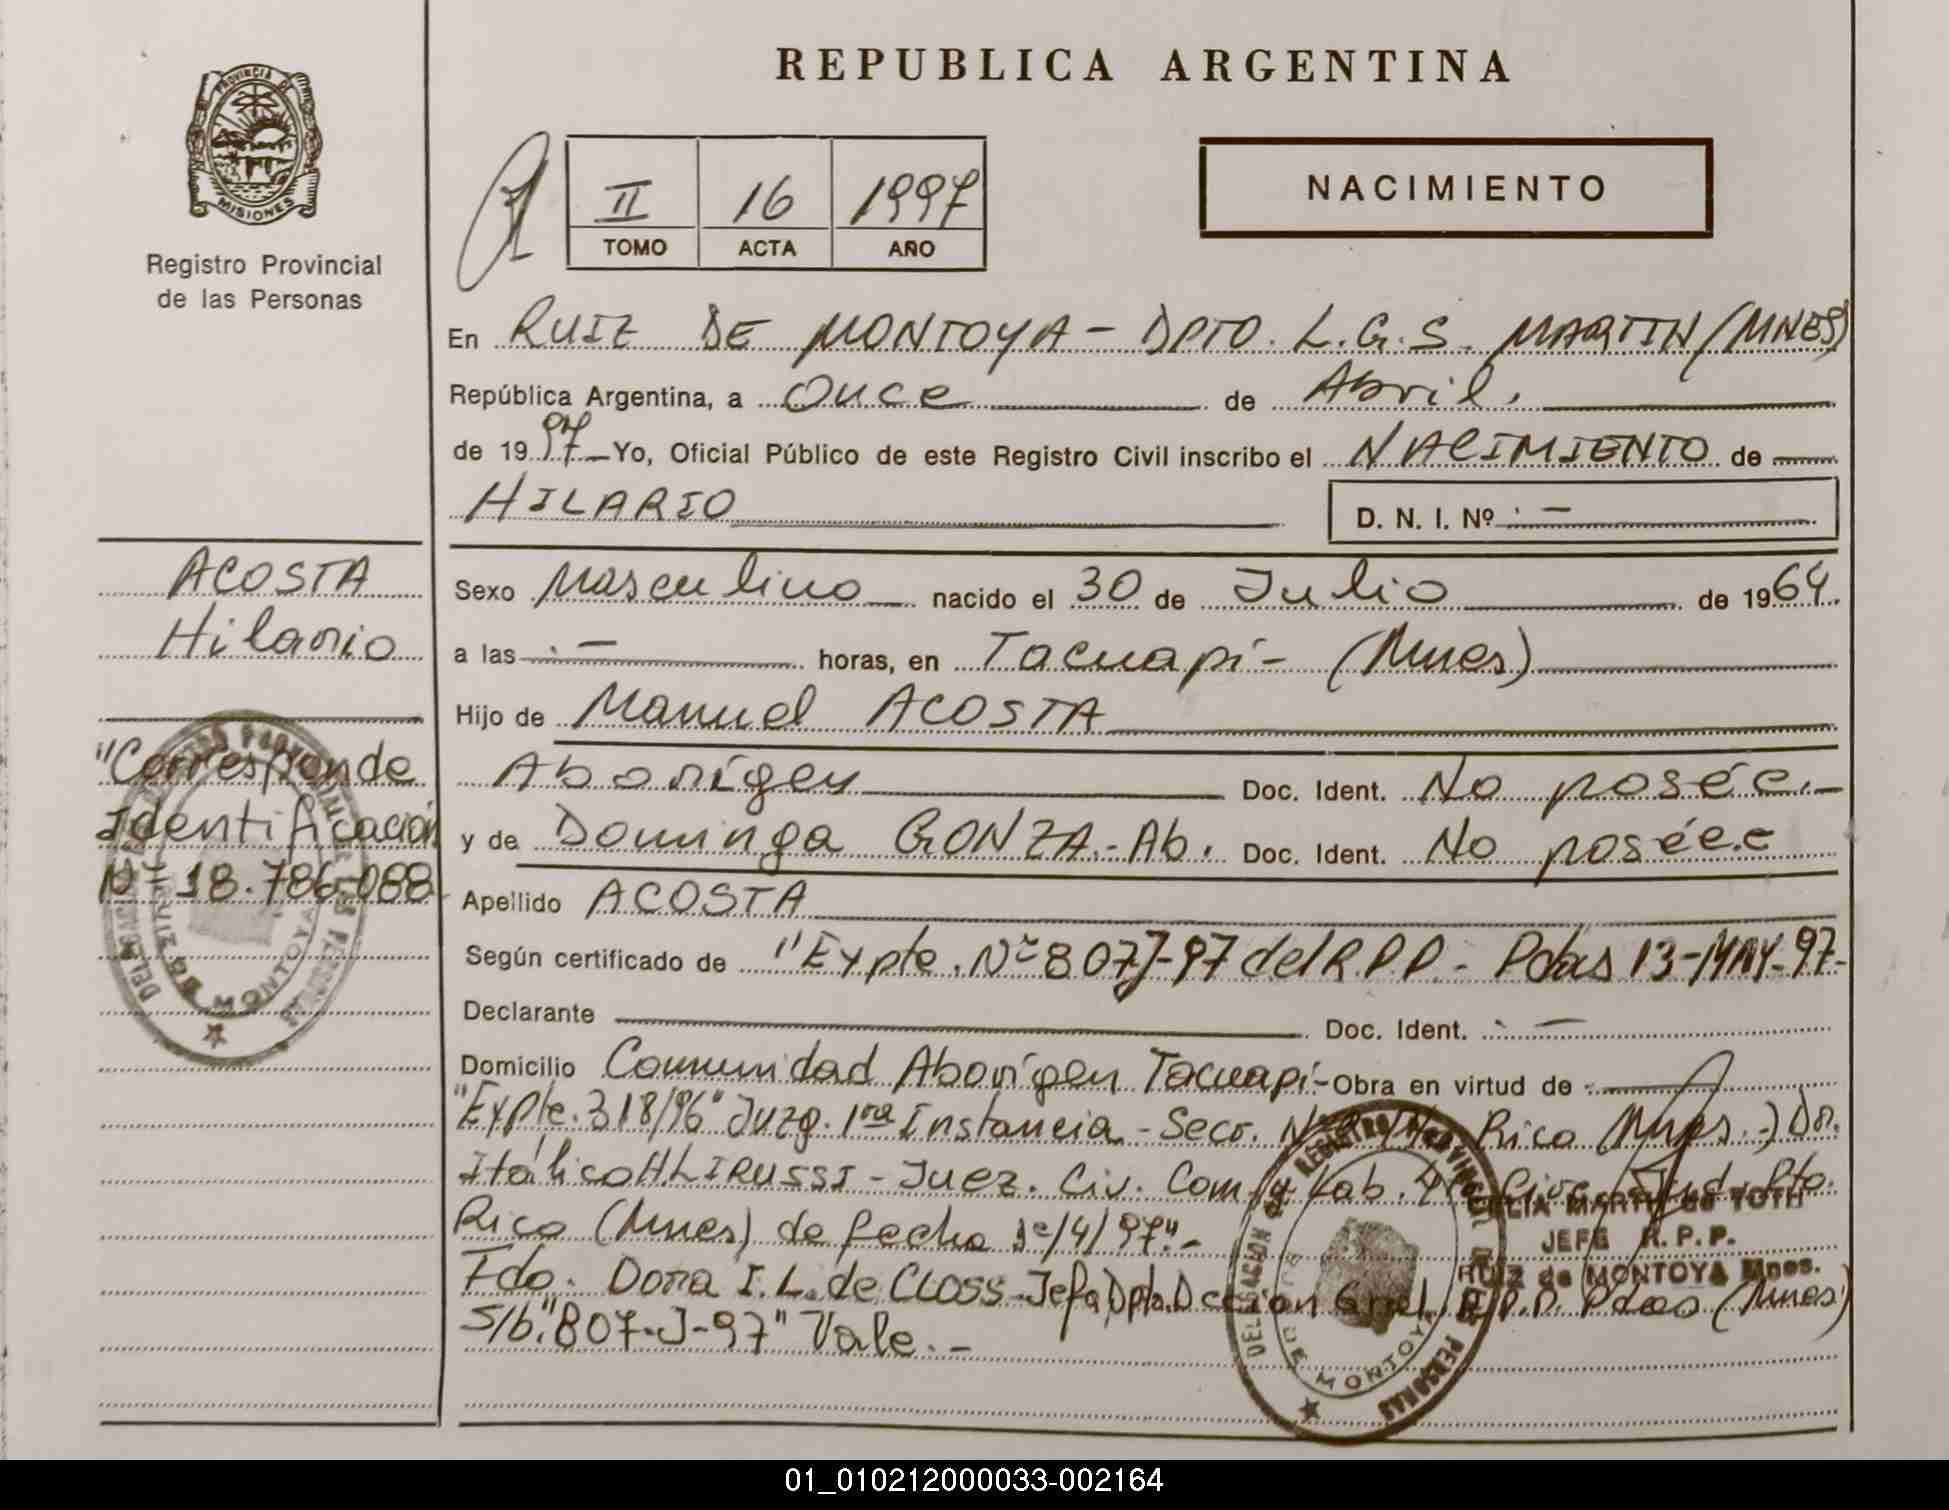 REPUBLICA ARGENTINA
PROVINCIA DE
MISIONES
Registro Provincial
de las Personas
II 16 1997
TOMO ACTA AÑO
NACIMIENTO
En RUIZ DE MONTOYA - DPTO. L.G.S. MARTIN (MNES)
República Argentina, a Once de Abril.
de 1997 Yo, Oficial Público de este Registro Civil inscribo el NACIMIENTO de
HILARIO D. N. I. Nº .-
ACOSTA
Hilario
Sexo Masculino nacido el 30 de Julio de 1964.
a las .- horas, en Tacuapí- (Mnes)
Hijo de Manuel ACOSTA
Aborígen Doc. Ident. No posée.-
y de Dominga GONZA.-Ab. Doc. Ident. No posée.c
"Corresponde
Identificación
Nº 18.786.088
Apellido ACOSTA
Según certificado de "Expte. Nº 807J-97 del R.P.P - Pdas 13-MAY-97-
Declarante Doc. Ident. .-
Domicilio Comunidad Aborígen Tacuapí- Obra en virtud de
"Expte. 318/96" Juzg. 1ra Instancia - Secr. Rico (Mnes.-) Dr.
Itálico H. LIRUSSI - Juez. Civ. Com. y Lab. Pto.
Rico (Mnes) de fecha 1º/4/97".-
Fdo. Dora I.L. de CLOSS - Jefa Dpto. Dccion Gral. R.P.P. Pdas (Mnes)
S/b. "807-J-97" Vale.-
CELIA MARTI de TOTH
JEFE R.P.P.
RUIZ de MONTOYA Mnes.
01_010212000033-002164